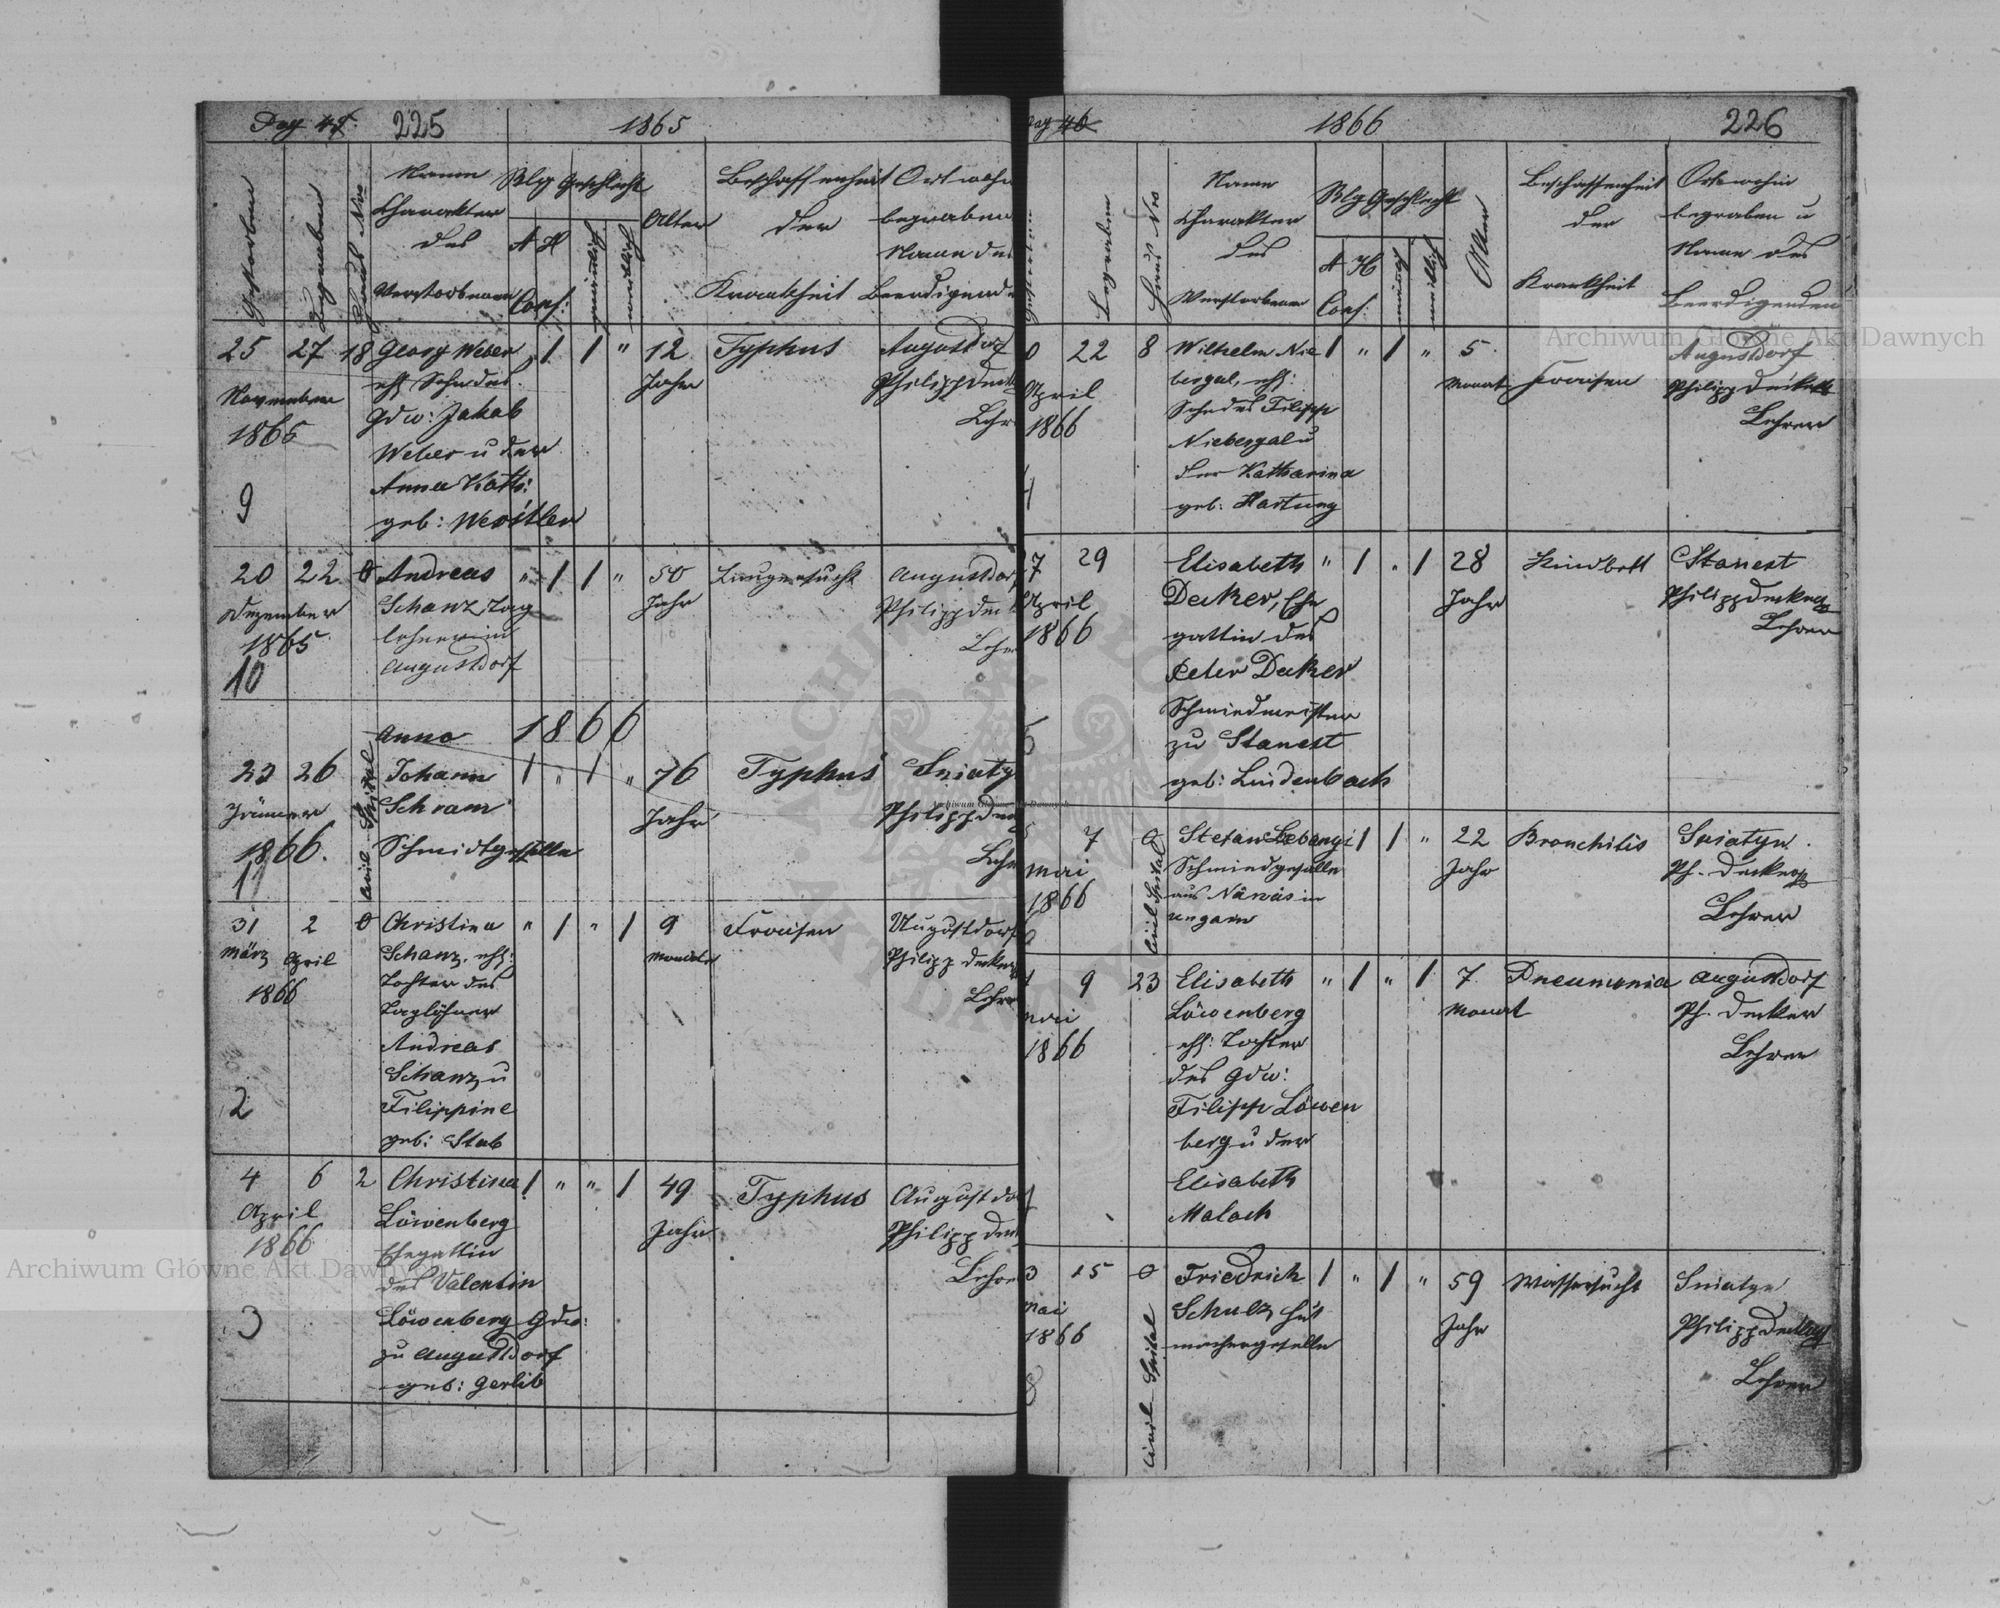 Pag 225 1865
Gestorben Begraben Haus Nro Name Charakter des Verstorbenen Rlg A H Conf: Geschlecht männlich weiblich Alter Beschaffenheit der Krankheit Ort wohin begraben Name des Beerdigenden
25 27 18 Georg Weber " 1 1 " 12 Typhus Augustdorf
ehl Sohn des Jahr Philipp Decker
November
1865 Gdw: Jakob Lehrer
Weber u der
Anna Kath:
9 geb:
20 22 0 Andreas " 1 1 " 50 Lungensucht Augustdorf
Dezember Schanz, Tag Jahr Philipp Decker
1865 löhner in Lehrer
10 Augustdorf
Anno 1866
23 26 Civil Spital Johann 1 " 1 " 76 Typhus Sniatyn
Jänner Schram Jahr Philipp Decker
1866. Schmidtgeselle Lehrer
11
31 2 0 Christina " 1 " 1 9 Fraisen Augustdorf
März April Schanz, ehl: Monate Philipp Decker
1866 Tochter des Lehrer
Taglöhner
Andreas
Schanz u
2 Filippine
geb: Stab
4 6 2 Christina 1 " " 1 49 Typhus Augustdorf
April Löwenberg Jahr Philipp Decker
1866 Ehegattin Lehrer
des Valentin
3 Löwenberg Gdw:
zu Augustdorf
geb: Gerlib
Pag 46 1866 226
Gestorben Begraben Haus Nro Name Charakter des Verstorbenen Rlg A H Conf: Geschlecht männlich weiblich Alter Beschaffenheit der Krankheit Ort wohin begraben u Name des Beerdigenden
0 22 8 Wilhelm Nie 1 " 1 " 5 Augustdorf
April bergal, ehl: Monat Fraisen Philipp Decker
1866 Sohn des Filipp Lehrer
Niebergal u
4 der Katharina
geb: Hartung
7 29 Elisabeth " 1 " 1 28 Kindbett Stanest
April Decker, Ehe Jahr Philipp Decker
1866 gattin des Lehrer
Peter Decker
Schmiedmeister
5 zu Stanest
geb: Lindenbach
7 0 Civil Spital Stefan 1 1 " 22 Bronchitis Sniatyn.
Mai Schmiedgeselle Jahr Ph. Decker
1866 aus Nánás in Lehrer
Ungarn
9 23 Elisabeth " 1 " 1 7 Pneumonia Augustdorf
Mai Löwenberg Monat Ph. Decker
1866 ehl: Tochter Lehrer
des Gdw:
Filipp Löwen
berg u der
Elisabeth
Malach
3 15 0 Civil Spital Friedrich 1 " 1 " 59 Wassersucht Sniatyn
Mai Schulz Hut Jahr Philipp Decker
1866 machergeselle Lehrer
8
Archiwum Główne Akt Dawnych
Archiwum Główne Akt Dawnych
Archiwum Główne Akt Dawnych